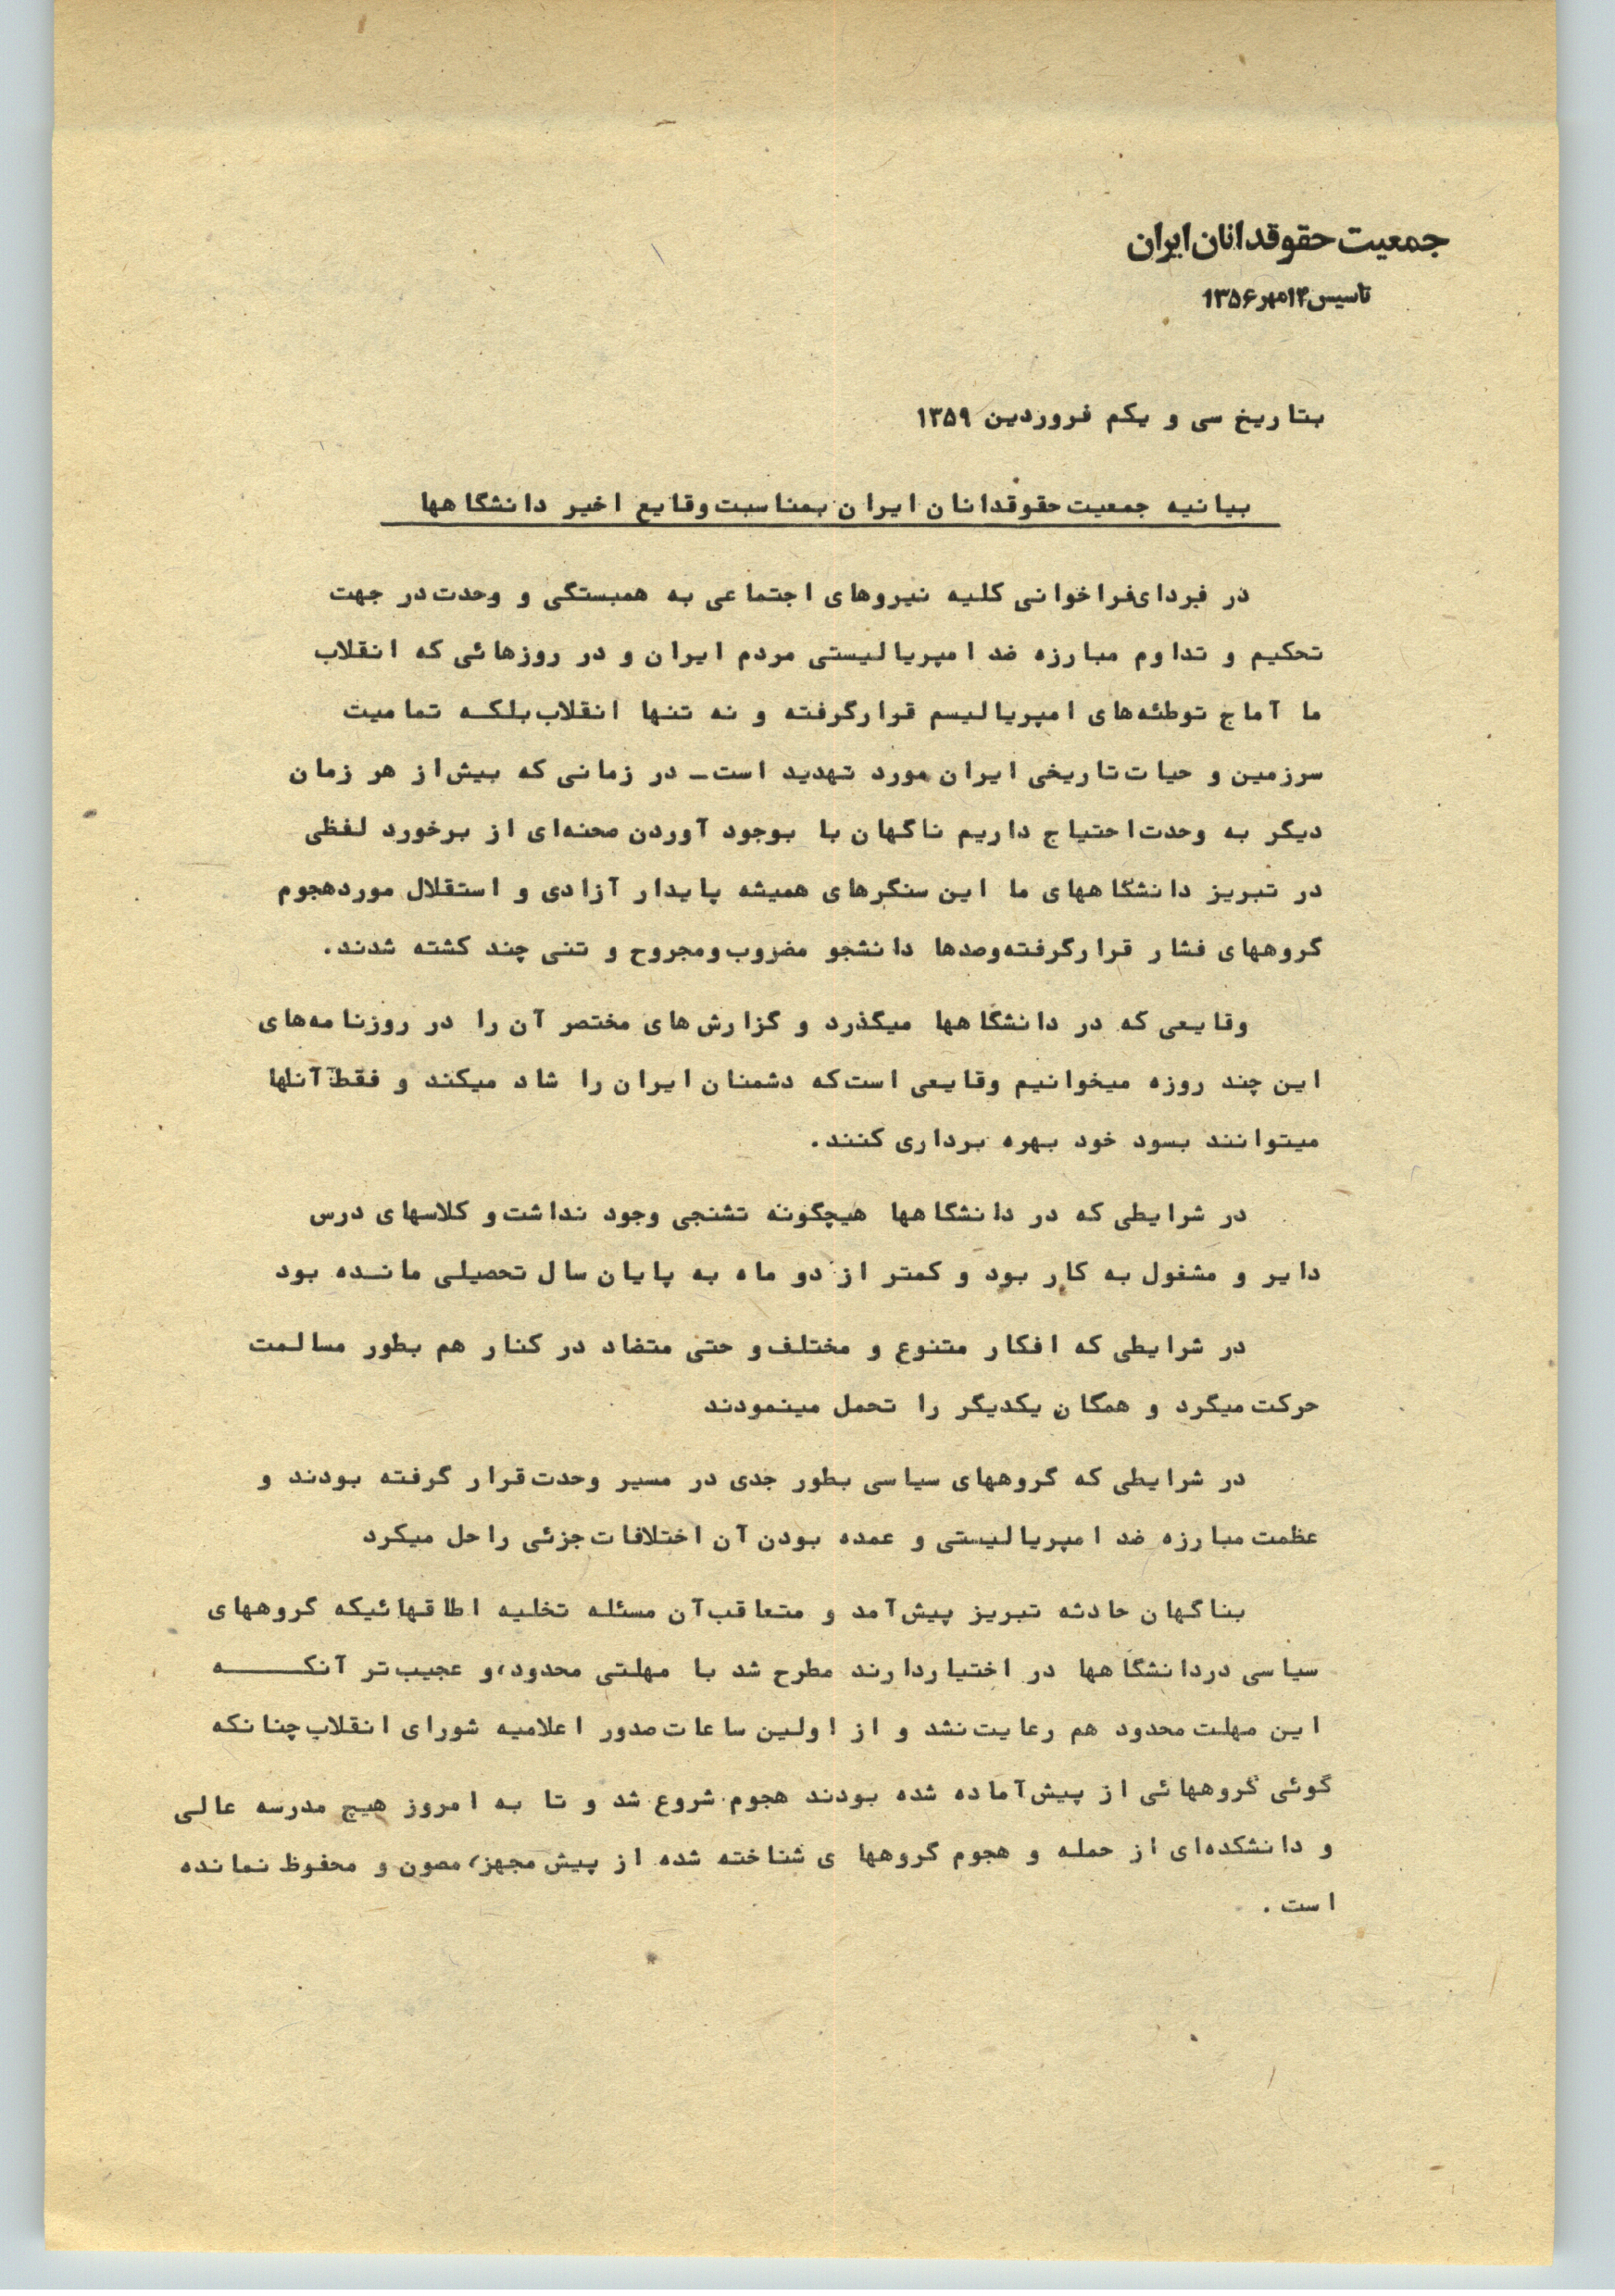 جمعیت حقوقدانان ایران
تاسیس ۱۴مهر ۱۳۵۶
بتاریخ سی و یکم فروردین ۱۳۵۹
بیانیه جمعیت حقوقدانان ایران بمناسبت وقایع اخیر دانشگاهها
در فردای فراخوانی کلیه نیروهای اجتماعی به همبستگی و وحدت در جهت
تحکیم و تداوم مبارزه ضد امپریالیستی مردم ایران و در روزهائی که انقلاب
ما آماج توطئه‌های امپریالیسم قرارگرفته و نه تنها انقلاب بلکه تمامیت
سرزمین و حیات تاریخی ایران مورد تهدید است ـ در زمانی که بیش از هر زمان
دیگر به وحدت احتیاج داریم ناگهان با بوجود آوردن صحنه‌ای از برخورد لفظی
در تبریز دانشگاههای ما این سنگرهای همیشه پایدار آزادی و استقلال موردهجوم
گروههای فشار قرارگرفته‌وصدها دانشجو مضروب‌ومجروح و تنی چند کشته شدند.
وقایعی که در دانشگاهها میگذرد و گزارش‌های مختصر آن را در روزنامه‌های
این چند روزه میخوانیم وقایعی است که دشمنان ایران را شاد میکند و فقط آنها
میتوانند بسود خود بهره برداری کنند.
در شرایطی که در دانشگاهها هیچگونه تشنجی وجود نداشت و کلاسهای درس
دایر و مشغول به کار بود و کمتر از دو ماه به پایان سال تحصیلی مانده بود
در شرایطی که افکار متنوع و مختلف و حتی متضاد در کنار هم بطور مسالمت
حرکت میکرد و همگان یکدیگر را تحمل مینمودند
در شرایطی که گروههای سیاسی بطور جدی در مسیر وحدت قرار گرفته بودند و
عظمت مبارزه ضد امپریالیستی و عمده بودن آن اختلافات جزئی را حل میکرد
بناگهان حادثه تبریز پیش آمد و متعاقب آن مسئله تخلیه اطاقهائیکه گروههای
سیاسی دردانشگاهها در اختیاردارند مطرح شد با مهلتی محدود، و عجیب‌تر آنکه
این مهلت محدود هم رعایت نشد و از اولین ساعات صدور اعلامیه شورای انقلاب چنانکه
گوئی گروههائی از پیش آماده شده بودند هجوم شروع شد و تا به امروز هیچ مدرسه عالی
و دانشکده‌ای از حمله و هجوم گروهها ی شناخته شده از پیش مجهز، مصون و محفوظ نمانده
است.